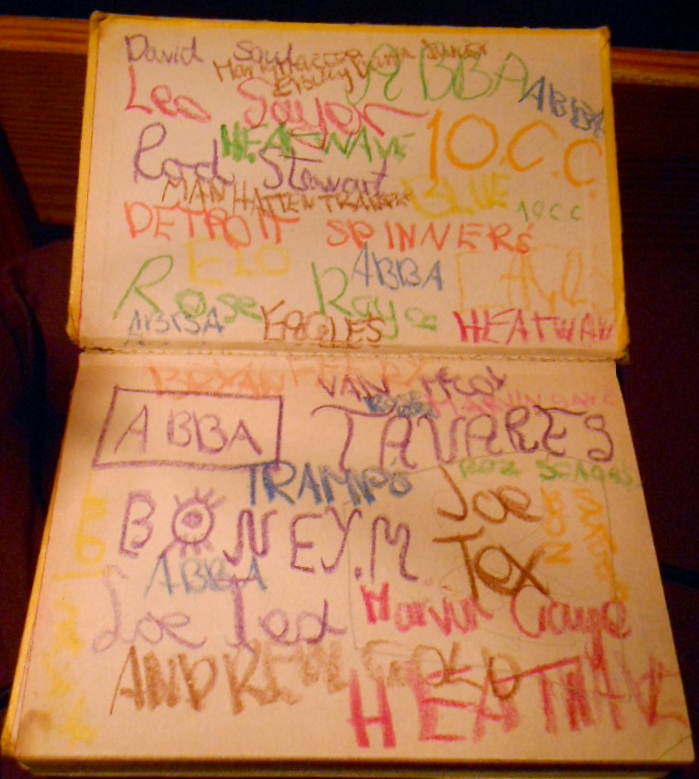 David Soul
ABBA
ABBA
Leo Sayer
HEATWAVE
10.C.C.
Rod Stewart
MANHATTEN TRANSFER
BLUE
10CC
DETROIT SPINNERS
ELO
ABBA
Rose Royce
ABBA
EAGLES
HEATWAV
BRYAN FERRY
VAN McCoy
MARVIN GAYE
ABBA
TAVARES
TRAMPS
BOZ SCAGGS
Joe
Tex
BONEY.M
ABBA
Joe Tex
Marvin Gaye
ANDREW GOLD
HEATWAVE